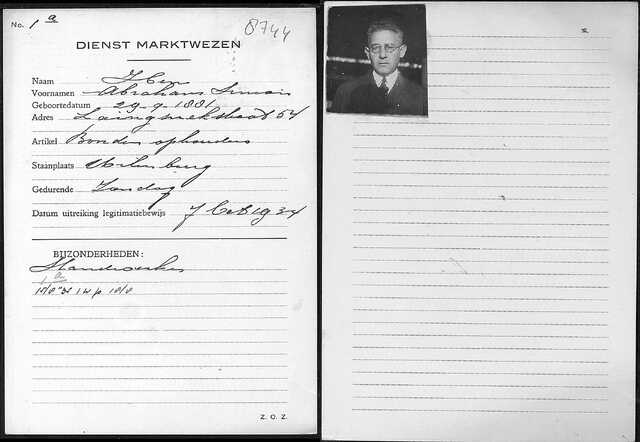 No. 1 a
8744
DIENST MARKTWEZEN
Naam
Voornamen Abraham Simon
Geboortedatum 29-9-1881
Adres Laingsnekstraat 54
Artikel Borden ophouders
Stainplaats Uilenburg
Gedurende Zondag
Datum uitreiking legitimatiebewijs 7 Oct 1934
BIJZONDERHEDEN:
Standwerker
1 a
Z. O. Z.